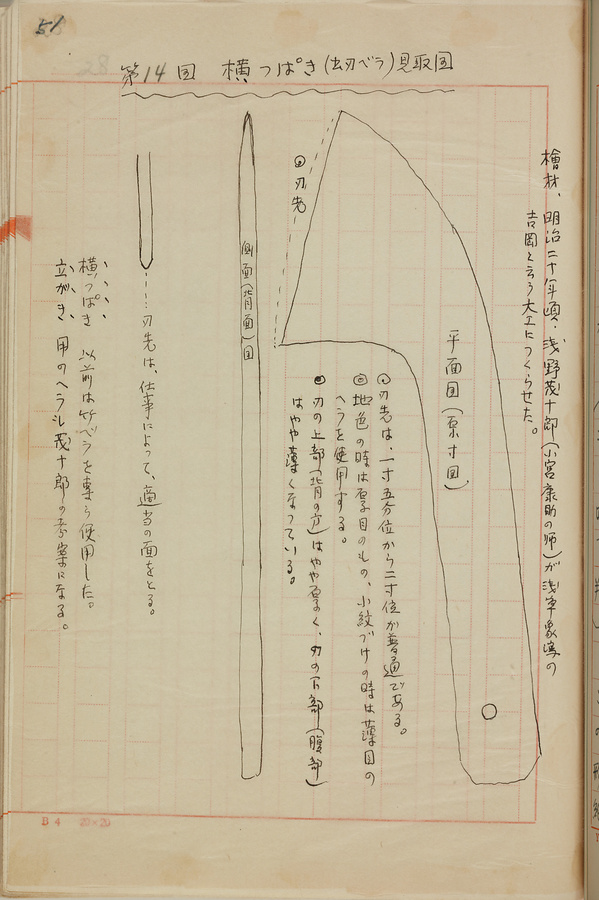 51
第14図 横っぱき(出刃ベラ)見取図
檜材、明治二十年頃、浅野茂十郎(小宮康助の師)が浅草象潟の
吉岡と云う大工につくらせた。
平面図(原寸図)
◉刃先は、一寸五分位から二寸位が普通である。
◉地色の時は厚目のもの、小紋づけの時は薄目の
ヘラを使用する。
◉刃の上部(背の方)はやや厚く、刃の下部(腹部)
はやや薄くなっている。
◉刃先
側面(背面)図
刃先は、仕事によって、適当の面をとる。
横っぱき 以前は竹ベラを専ら使用した。
立がき、用のヘラは茂十郎の考案になる。
B4 20×20